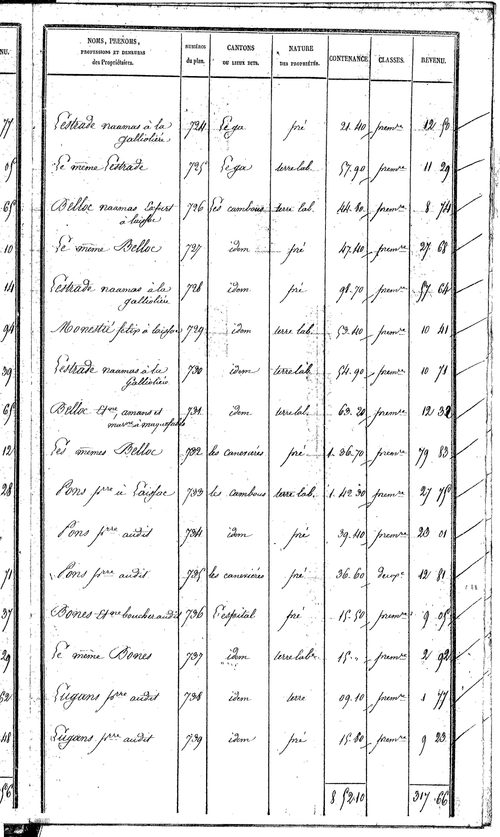 NU.
NOMS, PRENOMS, PROFESSIONS ET DEMEURES des Propriétaires.
NUMÉROS du plan.
CANTONS OU LIEUX DITS.
NATURE DES PROPRIÉTÉS.
CONTENANCE.
CLASSES.
REVENU.
77
Lestrade naamas à la 724 Léga pré 21.40 premre 12 50
galliolieu
05
Le même Lestrade 725 Léga terre lab. 57.90 premre 11 29
65
Belloc naamas 726 Les cambous terre lab. 44.80 premre 8 74
à laissac
10
Le même Belloc 727 idem pré 47.40 premre 27 68
14
Lestrade naamas à la 728 idem pré 98.70 premre 57 64
galliolieu
94
Monestié à laissac 729 idem terre lab. 53.40 premre 10 41
39
Lestrade naamas à la 730 idem terre lab. 54.90 premre 10 71
galliolieu
65
Belloc Etne, amans et 731 idem terre lab. 63.20 premre 12 32
12
Les mêmes Belloc 732 les caneviéres pré 1.36.70 premre 79 83
28
Pons prre à Laissac 733 les cambous terre lab. 1.42.30 premre 27 75
Pons prre audit 734 idem pré 39.40 premre 23 01
71
Pons prre audit 735 les caneviéres pré 36.60 deuxe 12 81
37
Bones Etne boucher audit 736 L'espital pré 15.50 premre 9 05
29
Le même Bones 737 idem terre lab. 15.. premre 2 92
52
Lugans prre audit 738 idem terre 09.10 premre 1 77
48
Lugans prre audit 739 idem pré 15.80 premre 9 23
56
8 52.10 317 66